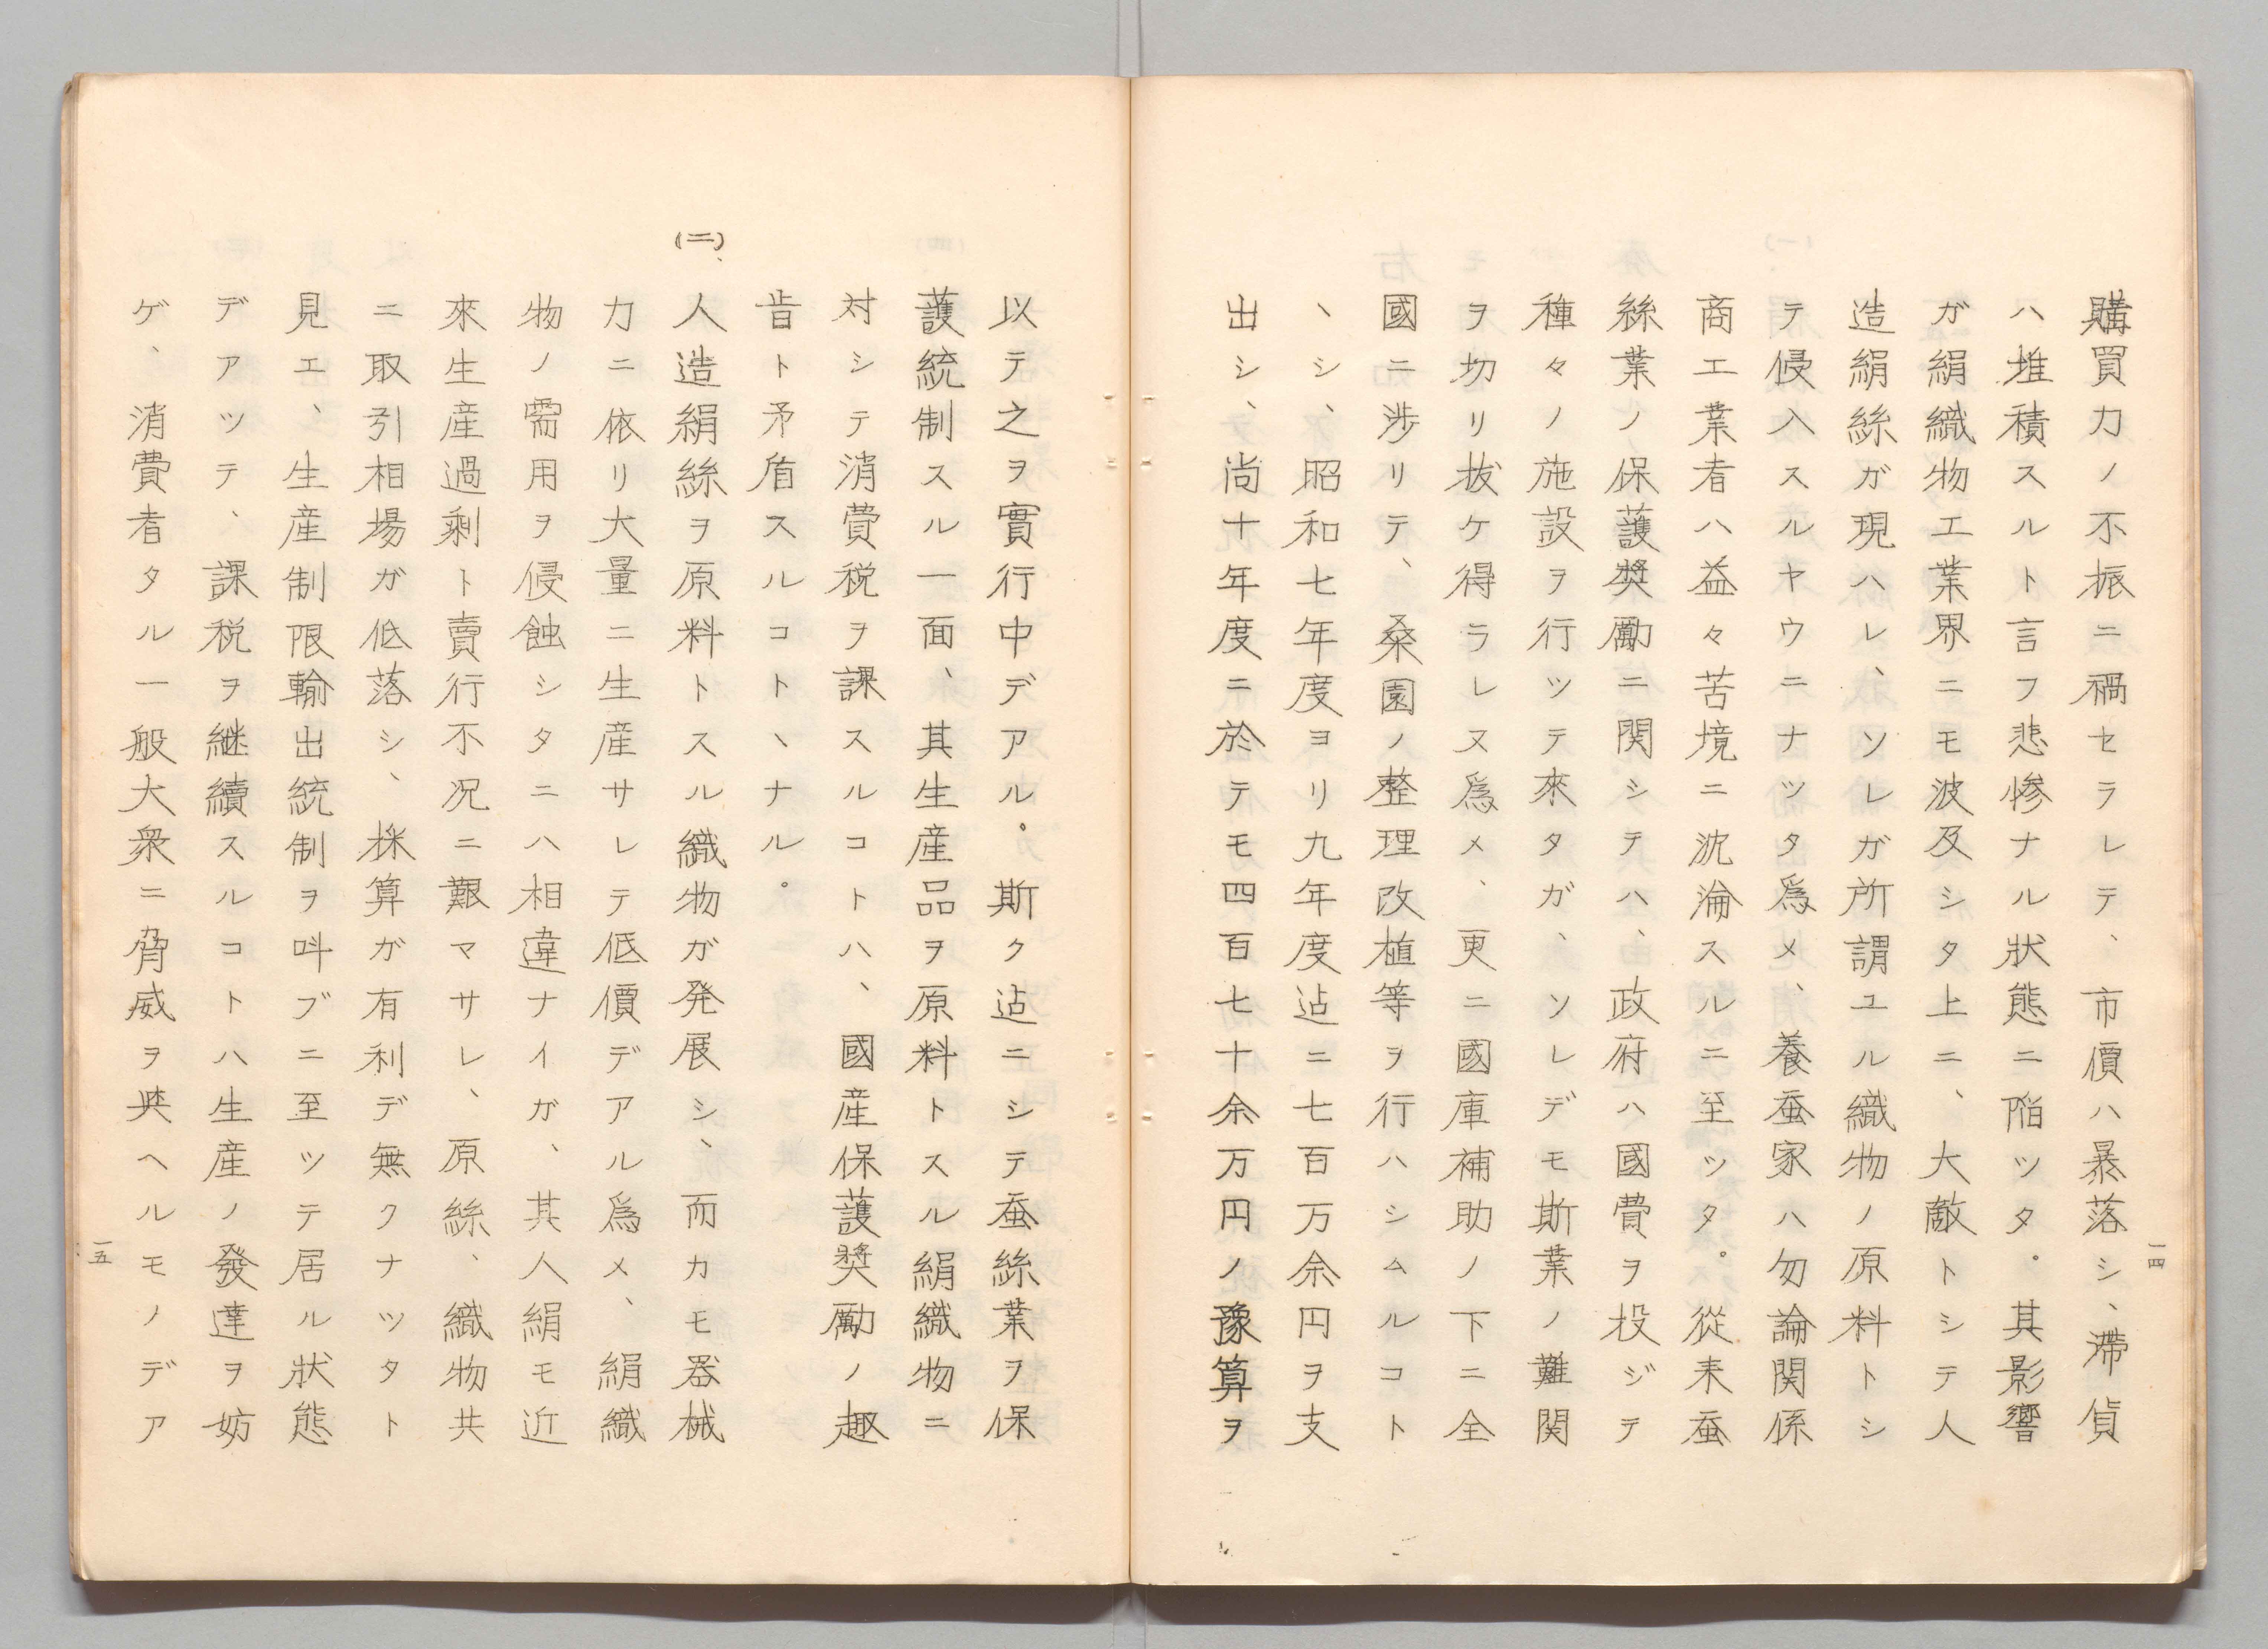 購買力ノ不振ニ禍セラレテ、市價ハ暴落シ、滯貨
ハ堆積スルト言フ悲惨ナル狀態ニ陥ツタ。其影響
ガ絹織物工業界ニモ波及シタ上ニ、大敵トシテ人
造絹絲ガ現ハレ、ソレガ所謂ユル織物ノ原料トシ
テ侵入スルヤウニナツタ爲メ、養蚕家ハ勿論関係
商工業者ハ益々苦境ニ沈淪スルニ至ツタ。從来蚕
絲業ノ保護奬勵ニ関シテハ、政府ハ國費ヲ投ジテ
種々ノ施設ヲ行ツテ來タガ、ソレデモ斯業ノ難関
ヲ切リ拔ケ得ラレヌ爲メ、更ニ國庫補助ノ下ニ全
國ニ渉リテ、桑園ノ整理改植等ヲ行ハシムルコト
ヽシ、昭和七年度ヨリ九年度迠ニ七百万余円ヲ支
出シ、尚十年度ニ於テモ四百七十余万円ノ豫算ヲ
一四
以テ之ヲ實行中デアル。斯ク迠ニシテ蚕絲業ヲ保
護統制スル一面、其生産品ヲ原料トスル絹織物ニ
対シテ消費税ヲ課スルコトハ、國産保護奬勵ノ趣
旨ト矛盾スルコトヽナル。
(二)、人造絹絲ヲ原料トスル織物ガ発展シ、而カモ器械
力ニ依リ大量ニ生産サレテ低價デアル爲メ、絹織
物ノ需用ヲ侵蝕シタニハ相違ナイガ、其人絹モ近
來生産過剰ト賣行不況ニ艱マサレ、原絲、織物共
ニ取引相場ガ低落シ、採算ガ有利デ無クナツタト
見エ、生産制限輸出統制ヲ叫ブニ至ツテ居ル狀態
デアツテ、課税ヲ継續スルコトハ生産ノ發達ヲ妨
ゲ、消費者タル一般大衆ニ脅威ヲ與ヘルモノデア
一五